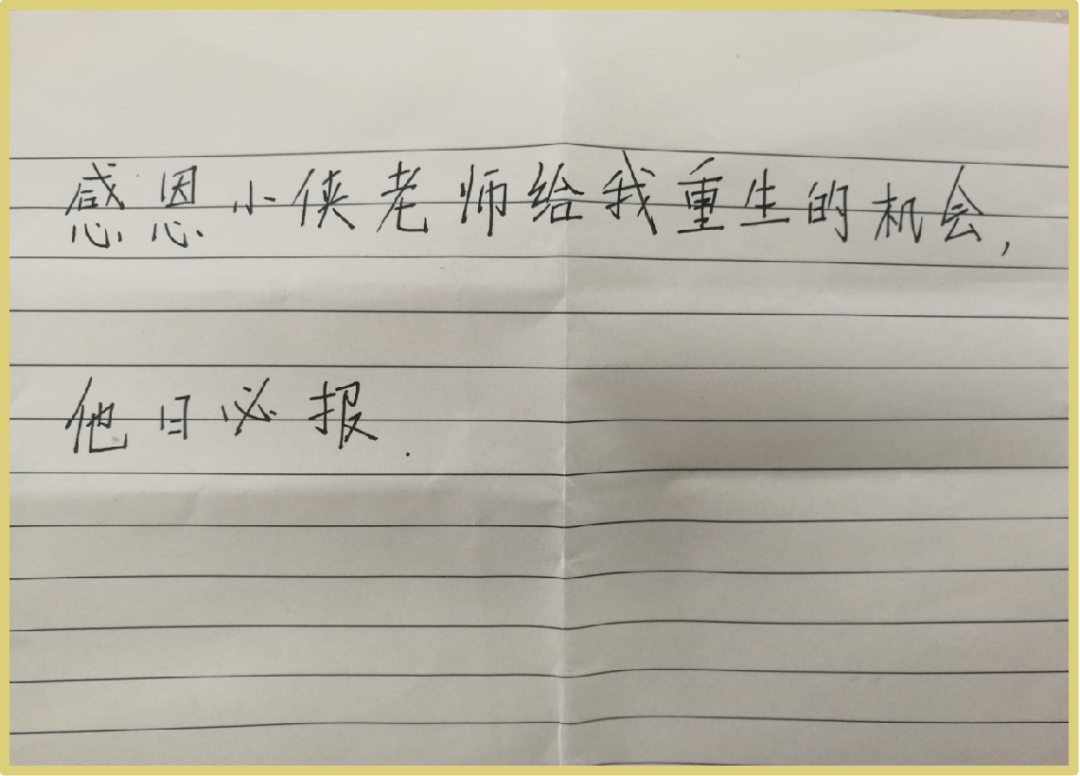 感恩小侠老师给我重生的机会,
他日必报.